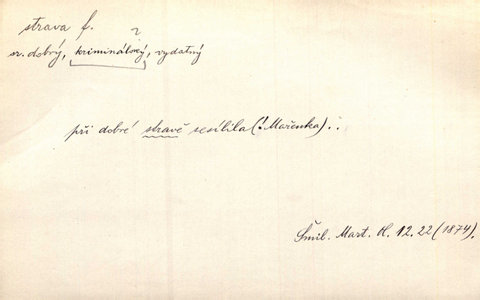 strava f.
?
sr. dobrý, kriminálový, vydatný
při dobré stravě sesílila (: Mařenka)..
Šmil. Mart. Ol. 12. 22 (1874).